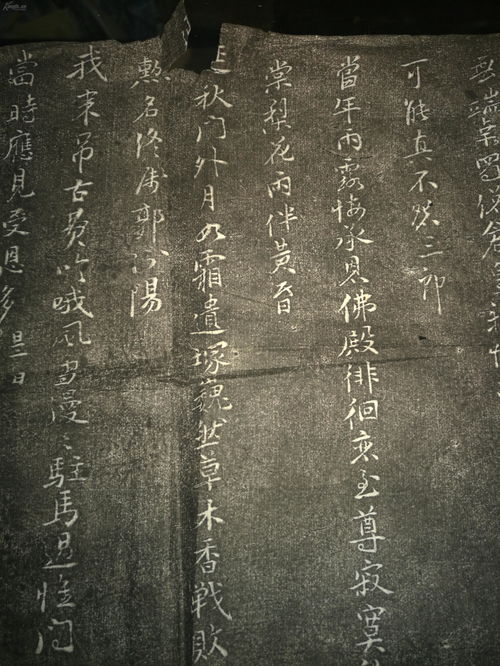 無端幸蜀倉
可能真不三郎
當年雨露悔承恩佛殿徘徊哀至尊寂寞
棠梨花雨伴黃昏
秋門外月如霜遺塚巍然草木香戰敗
名終郭汾陽
我來吊古費吟哦風漫々駐馬過惟問
當時應見受恩多